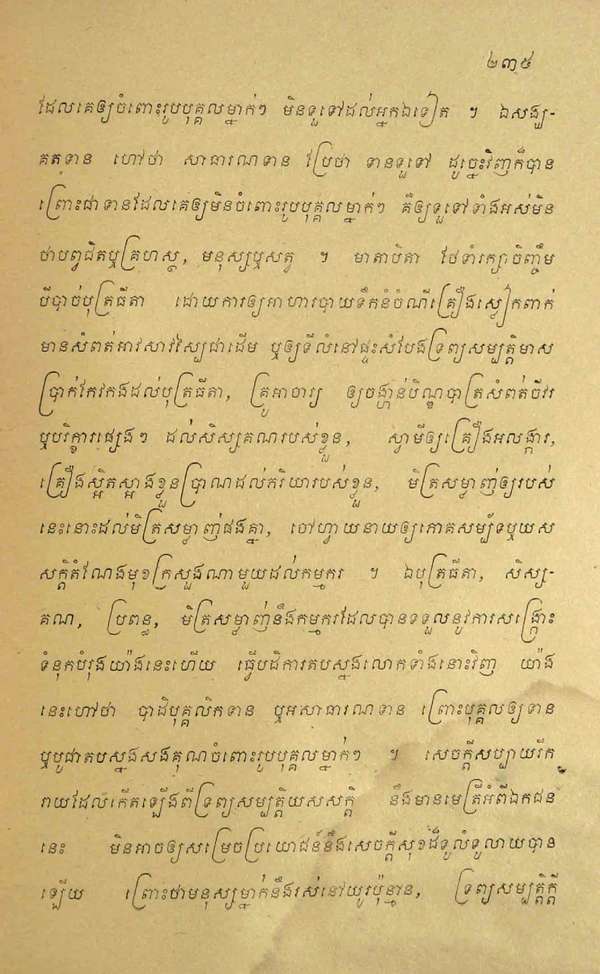 ២៣៥
ដែលគេឲ្យចំពោះរូបបុគ្គលម្នាក់ៗ មិនទួទៅដល់អ្នកឯទៀត ។ ឯសង្ឃ-
គតទាន ហៅថា សាធារណទាន ប្រែថា ទានទួទៅ ដូច្នេះវិញក៏បាន
ព្រោះជាទានដែលគេឲ្យមិនចំពោះរូបបុគ្គលម្នាក់ៗ គឺឲ្យទួទៅទាំងអស់មិន
ថាបព្វជិតឬគ្រហស្ថ, មនុស្សឬសត្វ ។ មាតាបិតា ថែទាំរក្សាចិញ្ចឹម
បីបាច់បុត្រធីតា ដោយការឲ្យអាហារបាយទឹកនំចំណីគ្រឿងស្លៀកពាក់
មានសំពត់អាវសាវស្បៃជាដើម ឬឲ្យទីលំនៅផ្ទះសំបែងទ្រព្យសម្បត្តិមាស
ប្រាក់កែវកងដល់បុត្រធីតា, គ្រូអាចារ្យ ឲ្យចង្ហាន់បិណ្ឌបាត្រសំពត់ចីវរ
ឬបរិក្ខារផ្សេងៗ ដល់សិស្សគណរបស់ខ្លួន, ស្វាមីឲ្យគ្រឿងអលង្ការ,
គ្រឿងស្អិតស្អាងខ្លួនប្រាណដល់ភរិយារបស់ខ្លួន, មិត្រសម្លាញ់ឲ្យរបស់
នេះនោះដល់មិត្រសម្លាញ់ផងគ្នា, ចៅហ្វាយនាយឲ្យភោគសម្ប័ទឬយស
សក្តិតំណែងមុខក្រសួងណាមួយដល់កម្មករ ។ ឯបុត្រធីតា, សិស្ស-
គណ, ប្រពន្ធ, មិត្រសម្លាញ់នឹងកម្មករដែលបានទទួលនូវការសង្គ្រោះ
ទំនុកបំរុងយ៉ាងនេះហើយ ធ្វើបដិការតបស្នងលោកទាំងនោះវិញ យ៉ាង
នេះហៅថា បាដិបុគ្គលិកទាន ឬអសាធារណទាន ព្រោះបុគ្គលឲ្យទាន
ឬបូជាតបស្នងសងគុណចំពោះរូបបុគ្គលម្នាក់ៗ ។ សេចក្តីសប្បាយរីក
រាយដែលកើតឡើងពីទ្រព្យសម្បត្តិយសសក្តិ នឹងមានមេត្រីអំពីឯកជន
នេះ មិនអាចឲ្យសម្រេចប្រយោជន៍នឹងសេចក្តីសុខដ៏ទូលំទូលាយបាន
ឡើយ ព្រោះថាមនុស្សម្នាក់នឹងរស់នៅយូរប៉ុន្មាន, ទ្រព្យសម្បត្តិក្តី